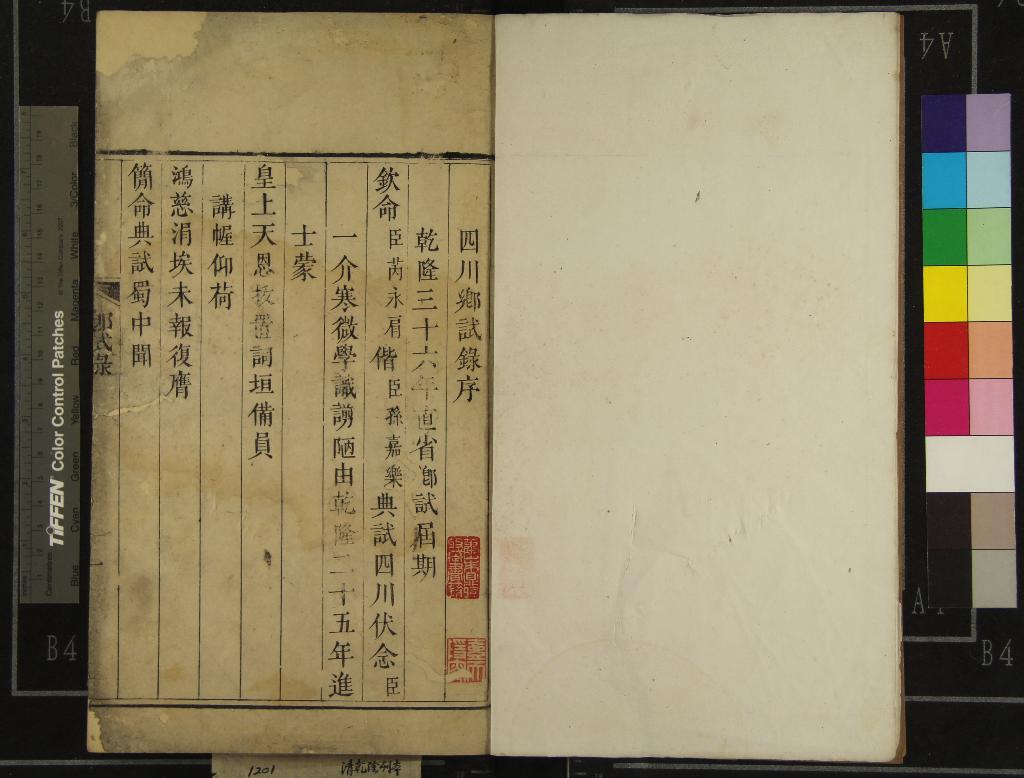 四川鄉試錄序
乾隆三十六年直省鄉試屆期
欽命臣芮永肩偕臣孫嘉樂典試四川伏念臣
一介寒微學識謭陋由乾隆二十五年進
士蒙
皇上天恩拔置詞垣備員
講幄仰荷
鴻慈涓埃未報復膺
簡命典試蜀中聞
鄉試錄
一
1201
清乾隆刊本
TIFFEN Color Control Patches
© The Tiffen Company, 2007
Blue
Cyan
Green
Yellow
Red
Magenta
White
3/Color
Black
B4
A4
B4
B4